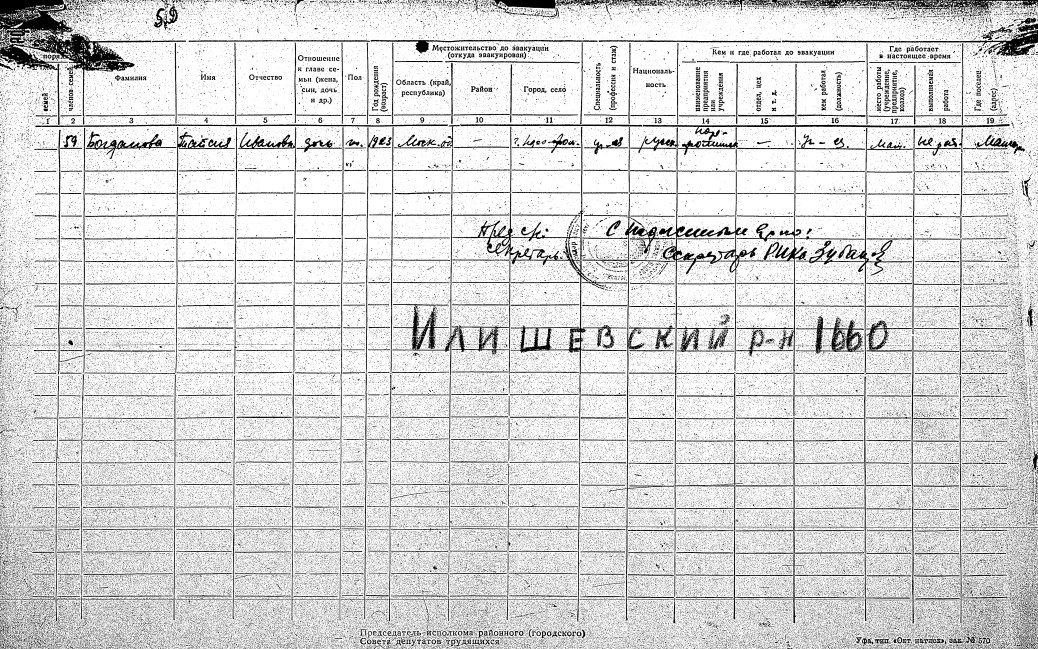 59
Местожительство до эвакуации
(откуда эвакуирован)
Кем и где работал до эвакуации
Где работает
в настоящее время
семей
членов семей
Фамилия
Имя
Отчество
Отношение
к главе се-
мьи (жена,
сын, дочь
и др.)
Пол
Год рождения
(возраст)
Область (край,
республика)
Район
Город, село
Специальность
(профессия и стаж)
Националь-
ность
наименование
предприятия
или
учреждения
отдел, цех
и т. д.
кем работал
(должность)
место работы
(учреждение,
предприятие,
колхоз)
выполняемая
работа
Где поселен
(адрес)
1 2 3 4 5 6 7 8 9 10 11 12 13 14 15 16 17 18 19
59 Богданова Таисия дочь 1923 Моск. — —
Секретарь
Секретарь РИКа
ИЛИШЕВСКИЙ Р-Н 1660
Председатель исполкома районного (городского)
Совета депутатов трудящихся
Уфа, тип. «Окт. натиск», зак. № 570